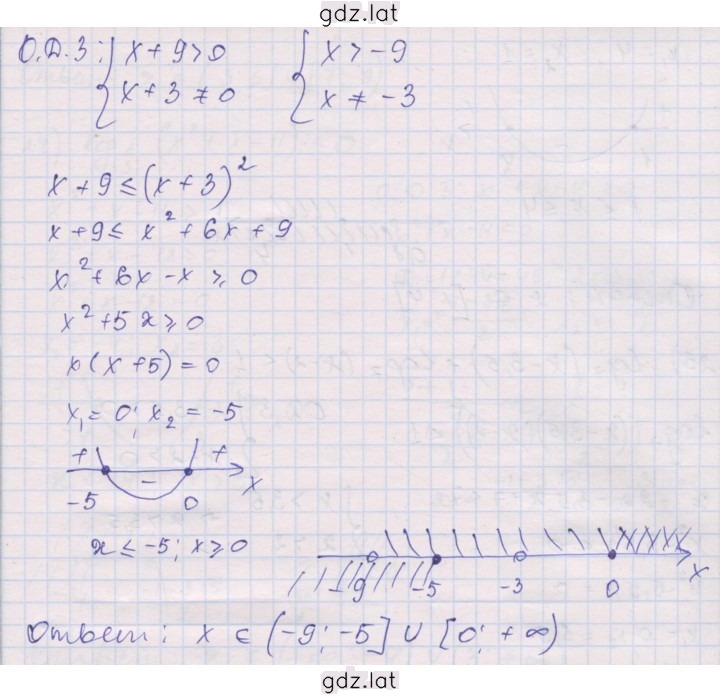 gdz.lat
О.Д.З: { x + 9 > 0 { x > -9
x + 3 ≠ 0 x ≠ -3
x + 9 ≤ (x + 3)²
x + 9 ≤ x² + 6x + 9
x² + 6x - x ≥ 0
x² + 5x ≥ 0
x(x + 5) = 0
x₁ = 0; x₂ = -5
+ - + x
-5 0
x ≤ -5; x ≥ 0
-9 -5 -3 0 x
Ответ: x ∈ (-9; -5] ∪ [0; +∞)
gdz.lat